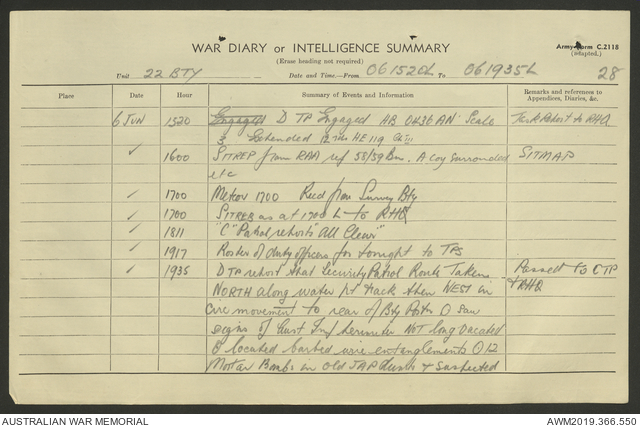 Army Form C.2118
(adapted.)
WAR DIARY or INTELLIGENCE SUMMARY
(Erase heading not required)
Unit 22 BTY Date and Time—From 061520L To 061935L
28
Place Date Hour Summary of Events and Information Remarks and references to Appendices, Diaries, &c.
6 JUN 1520 Engaged D TP Engaged HB 0436 AN Scale Task Report to RHQ
3 Extended 12 rds HE 119
✓ 1600 SITREP from RAA ref 58/59 Bn. A coy surrounded SITMAP
etc
✓ 1700 Meteor 1700 Recd from Survey Bty
✓ 1700 SITREP as at 1700 L to RHQ
✓ 1811 "C" Patrol reports "All Clear"
✓ 1917 Roster of duty officers for tonight to TPS
✓ 1935 D TP report that Security Patrol Route Taken Passed to CTP
NORTH along water pt track then WEST in + RHQ
circ movement to rear of Bty Posn saw
signs of NOT long vacated
located barbed wire entanglements 12
Mortar Bombs in old JAP + suspected
AUSTRALIAN WAR MEMORIAL AWM2019.366.550